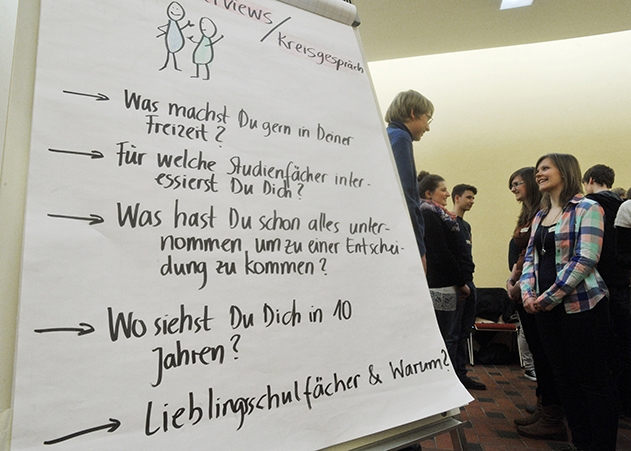 views /
Kreisgespräch
→ Was machst Du gern in Deiner
Freizeit?
→ Für welche Studienfächer inter-
essierst Du Dich?
→ Was hast Du schon alles unter-
nommen, um zu einer Entschei-
dung zu kommen?
→ Wo siehst Du Dich in 10
Jahren?
→ Lieblingsschulfächer & Warum?